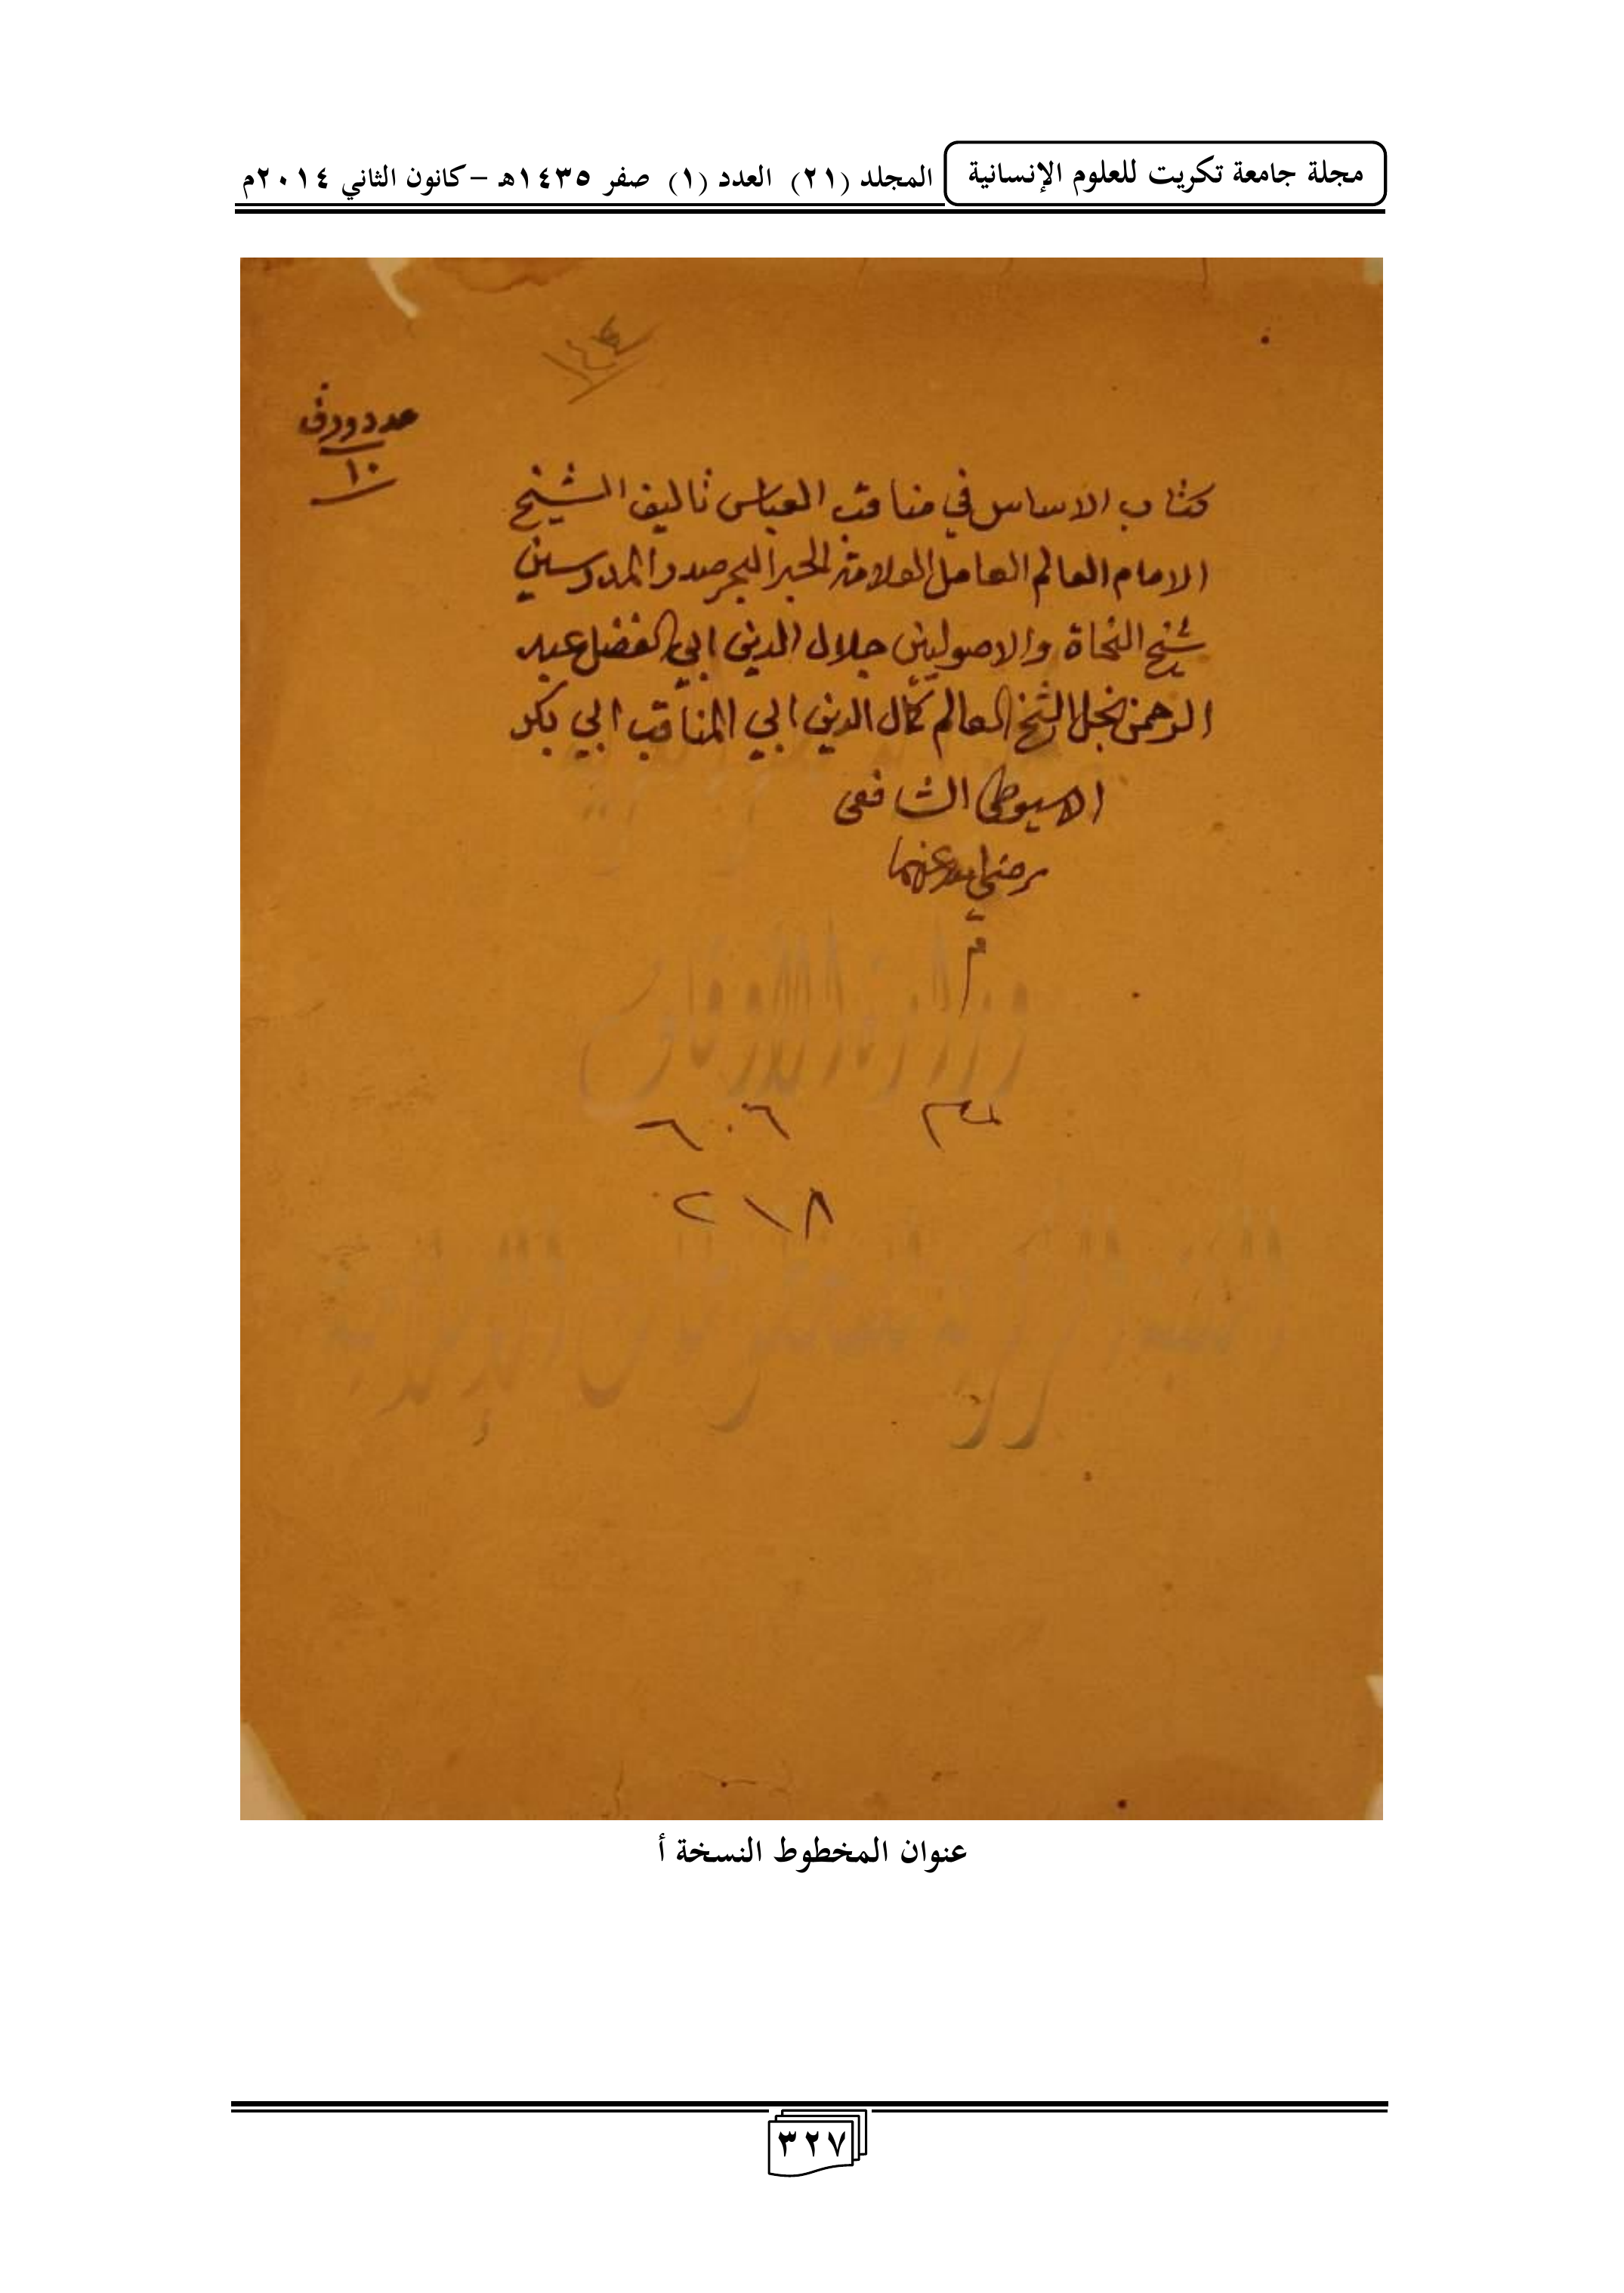 مجلة جامعة تكريت للعلوم الإنسانية المجلد (٢١) العدد (١) صفر ١٤٣٥هـ – كانون الثاني ٢٠١٤م
عدد ورق
١٠
كتاب الاساس في مناقب العباس تاليف الشيخ
الامام العالم العامل العلامة الحبر البحر صدر المدرسين
شيخ النحاة والاصوليين جلال الدين ابي الفضل عبد
الرحمن نجل الشيخ العالم كمال الدين ابي المناقب ابي بكر
الاسيوطي الشافعي
رضي الله عنهما
م
وزارة الأوقاف
٦٠٦
٢١٨
عنوان المخطوط النسخة أ
٣٢٧